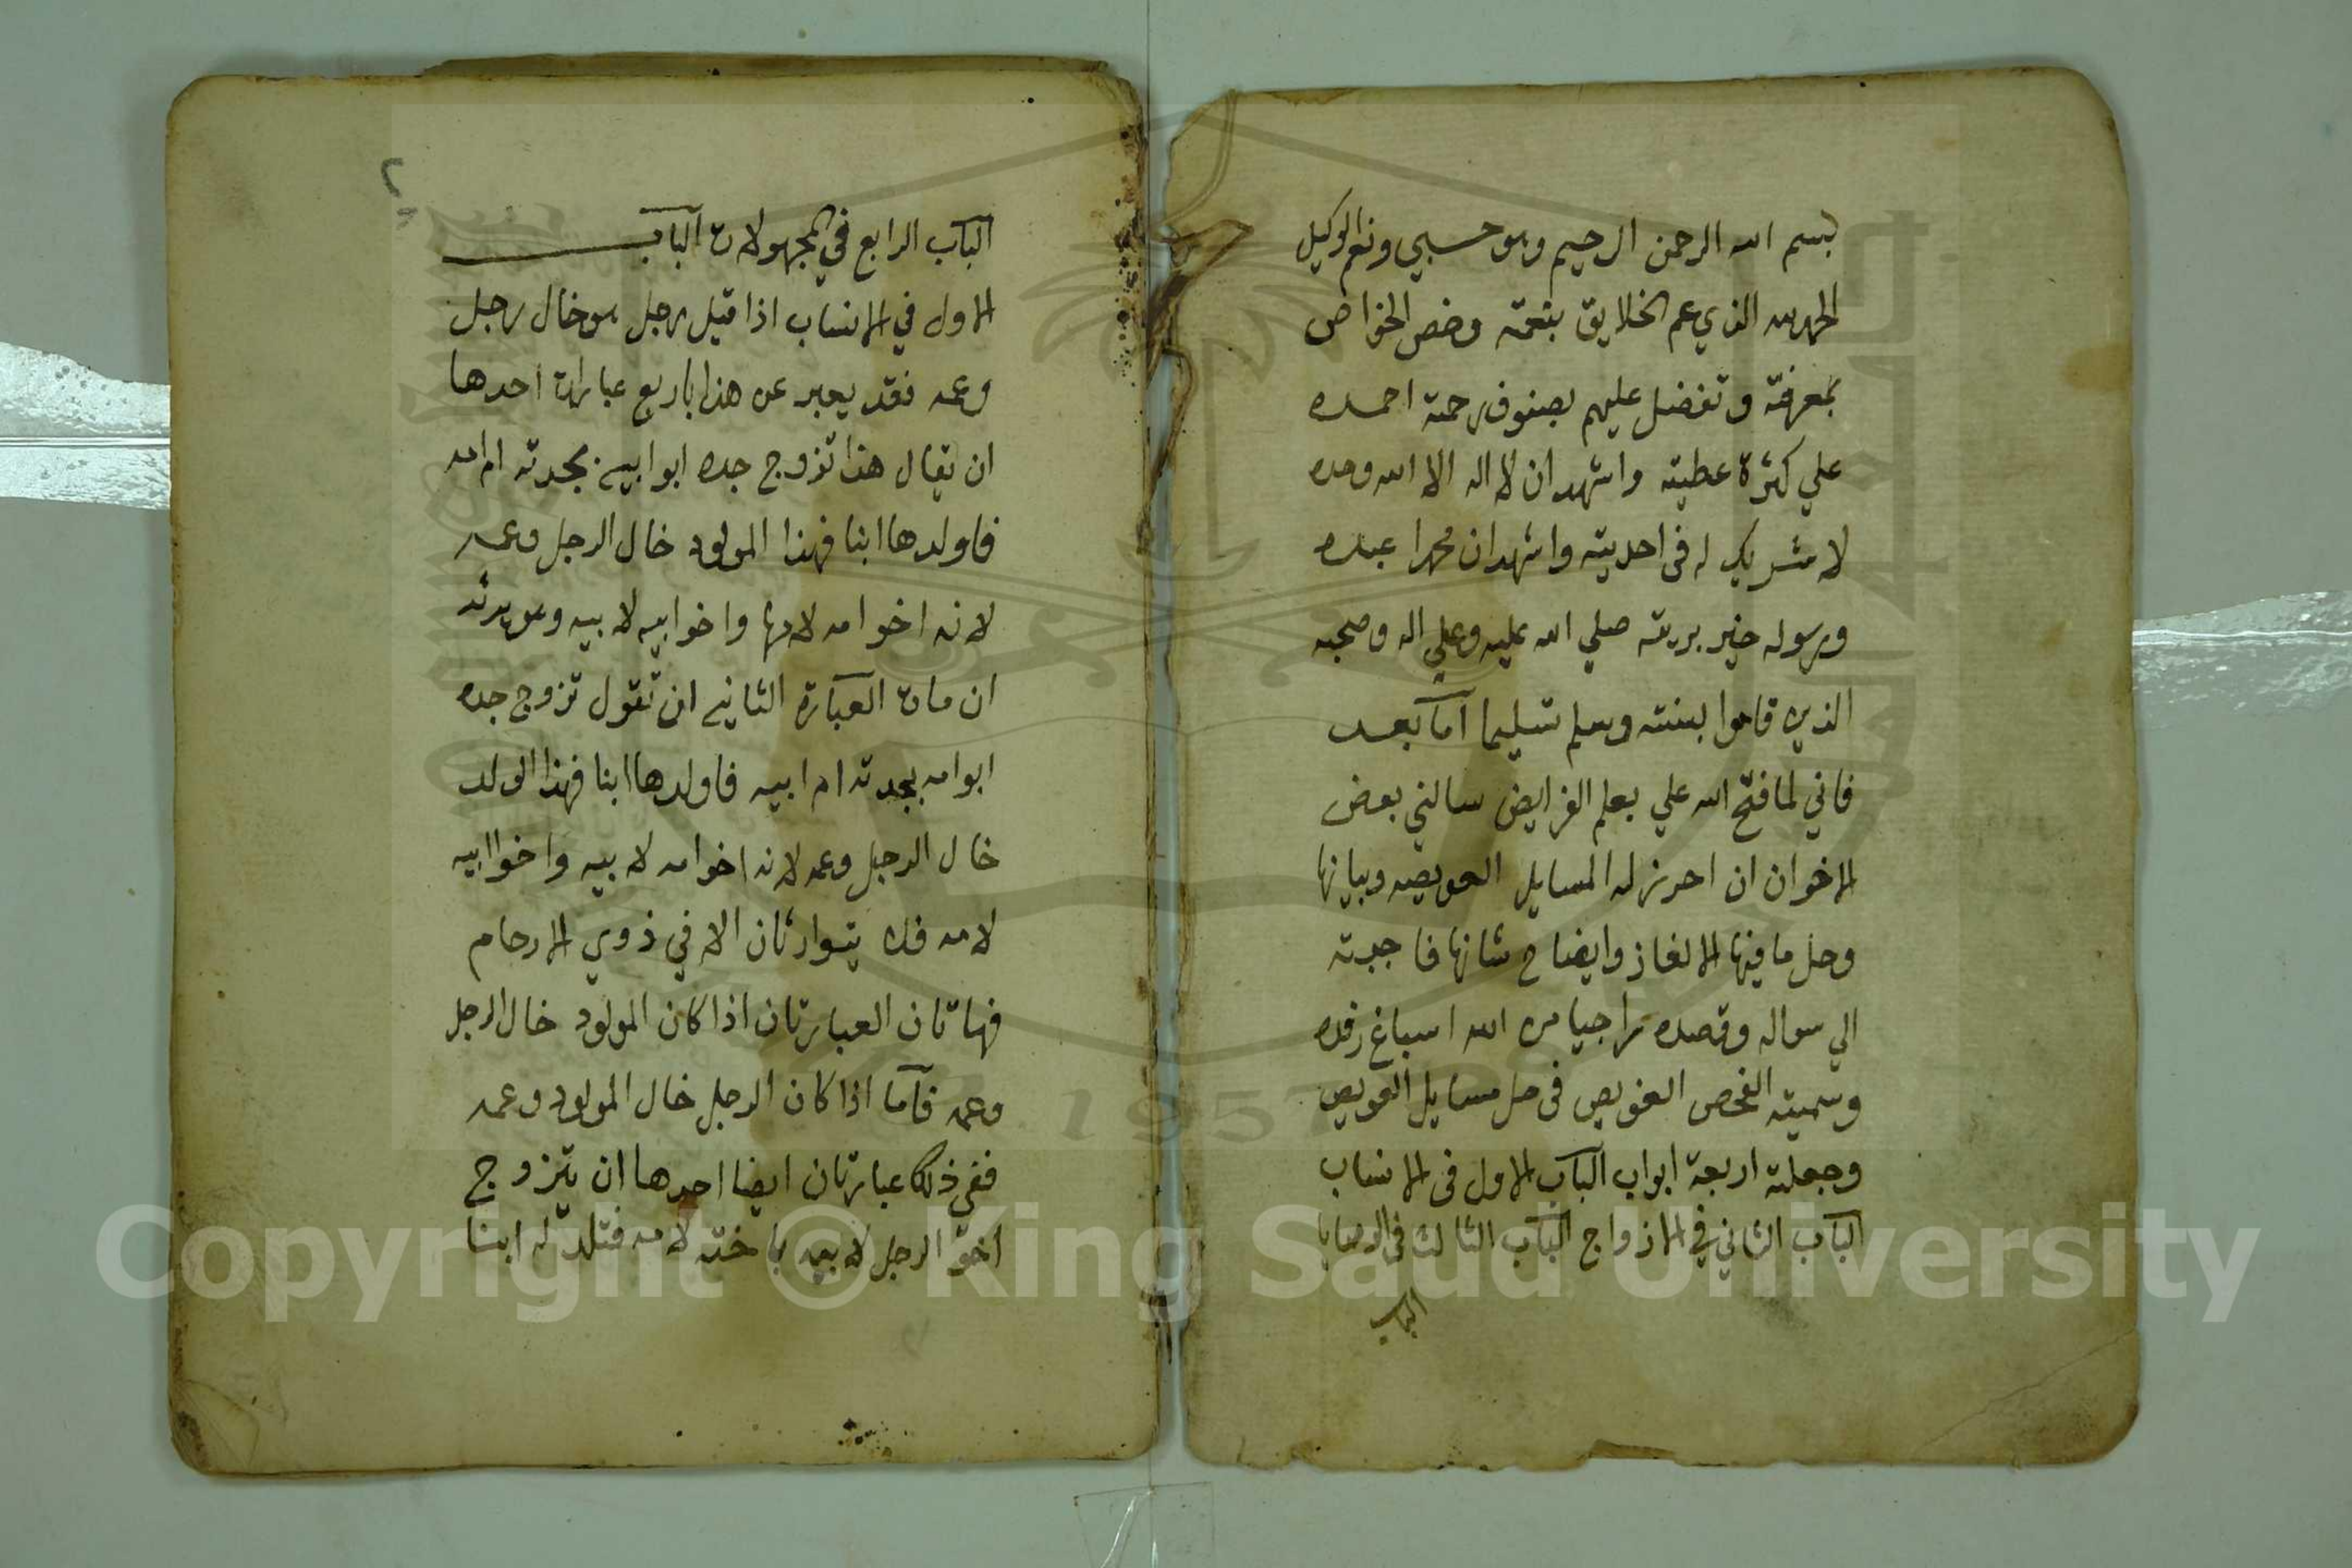 بسم الله الرحمن الرحيم وهو حسبي ونعم الوكيل
الحمد لله الذي عم الخلايق بنعمته وخص الخواص
بمعرفته وتفضل عليهم بصنوف رحمته احمده
علي كثرة عطيته واشهد ان لا اله الا الله وحده
لا شريك له في احديته واشهد ان محمدا عبده
ورسوله خير بريته صلي الله عليه وعلي اله وصحبه
الذين قاموا بسنته وسلم تسليما اما بعد
فاني لما فتح الله علي بعلم الفرايض سالني بعض
الاخوان ان احرز له المسايل العويصه وبيانها
وحل ما فيها الالغاز وايضاح شانها فاجبته
الي سواله وقصده راجيا من الله اسباغ رفده
وسميته الفحص الغويص في حل مسايل العويص
وجعلته اربعة ابواب الباب الاول في الانساب
الباب الثاني في الازواج الباب الثالث في الوصايا
الباب
٢
الباب الرابع في المجهولات الباب
الاول في الانساب اذا قيل رجل هو خال رجل
وعمه فقد يعبر عن هذا باربع عبارات احدها
ان يقال هذا تزوج جده ابو ابيه بجدته ام امه
فاولدها ابنا فهذا المولود خال الرجل وعمه
لانه اخو امه لامها واخو ابيه لابيه وهو يرثه
ان مات العبارة الثانيه ان تقول تزوج جده
ابو امه بجدته ام ابيه فاولدها ابنا فهذا الولد
خال الرجل وعمه لانه اخو امه لابيه واخوا ابيه
لامه فلا يتوارثان الا في ذوي الارحام
فهاتان العبارتان اذا كان المولود خال الرجل
وعمه فاما اذا كان الرجل خال المولود وعمه
ففي ذلك عبارتان ايضا احدها ان يتزوج
اخو الرجل لابيه باخته لامه فتلد له ابنا
Copyright © King Saud University
1957